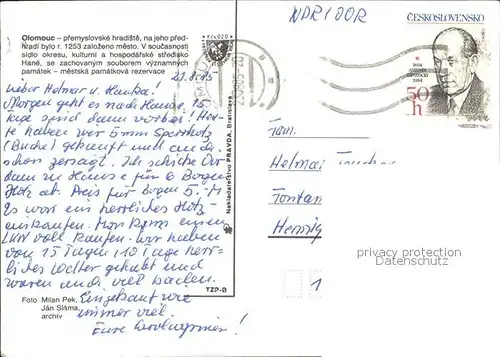 Olomouc – přemyslovské hradiště, na jeho před-
hradí bylo r. 1253 založeno město. V současnosti
sídlo okresu, kulturní a hospodářské středisko
Hané, se zachovaným souborem významných
památek – městská památková rezervace
21.8.85
Lieber Helmar u. Hanka!
Morgen geht es nach Hause, 15
Tage sind dann vorbei! Heu-
te haben wir 5mm Sperrholz
(Buche) gekauft und auch
schon zersägt. Ich schicke Dir
dann zu Hause für 6 Bogen
Holz ab. Preis für Bogen 5.-M
Es war ein herrliches Holz-
einkaufen. Man kann einen
LKW voll kaufen. Wir haben
von 15 Tagen 10 Tage herr-
liches Wetter gehabt und
waren auch viel baden.
Eingekauft wie
immer viel.
Eure
Foto Milan Pek,
Ján Sláma,
archív
TZP-B
Nakladateľstvo PRAVDA, Bratislava
Kčs 0,20
NDR / DDR
ČESKOSLOVENSKO
1884
ANTONÍN
ZÁPOTOCKÝ
1984
50 h
Fam.
Helmar
Fontan
Hennig
1
privacy protection
Datenschutz